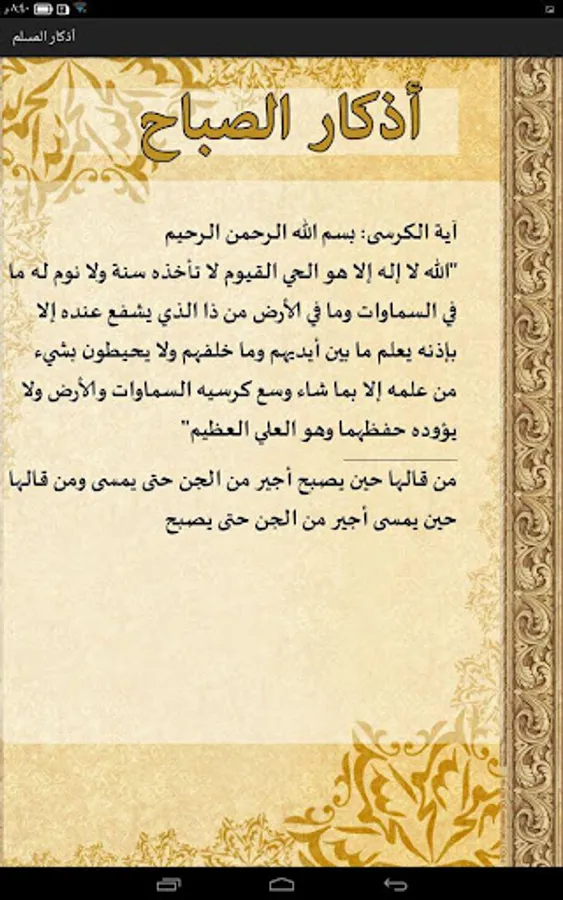 ٨:٤٠ م
أذكار المسلم
أذكار الصباح
آية الكرسى: بسم الله الرحمن الرحيم
"الله لا إله إلا هو الحي القيوم لا تأخذه سنة ولا نوم له ما
في السماوات وما في الأرض من ذا الذي يشفع عنده إلا
بإذنه يعلم ما بين أيديهم وما خلفهم ولا يحيطون بشيء
من علمه إلا بما شاء وسع كرسيه السماوات والأرض ولا
يؤوده حفظهما وهو العلي العظيم"
من قالها حين يصبح أجير من الجن حتى يمسى ومن قالها
حين يمسى أجير من الجن حتى يصبح